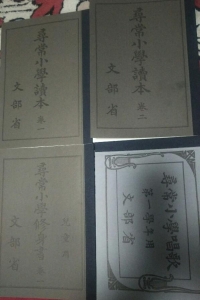 尋常小學讀本 卷一
文部省
尋常小學讀本 卷二
文部省
尋常小學修身書 卷一
兒童用
文部省
尋常小學唱歌
第一學年用
文部省